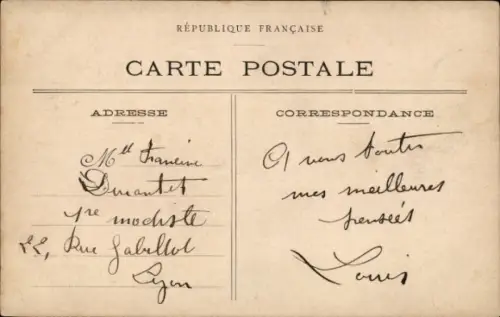 RÉPUBLIQUE FRANÇAISE
CARTE POSTALE
ADRESSE
CORRESPONDANCE
Mlle Francine
1re modiste
22, Rue Gabillot
Lyon
A vous toutes
mes meilleures
pensées
Louis